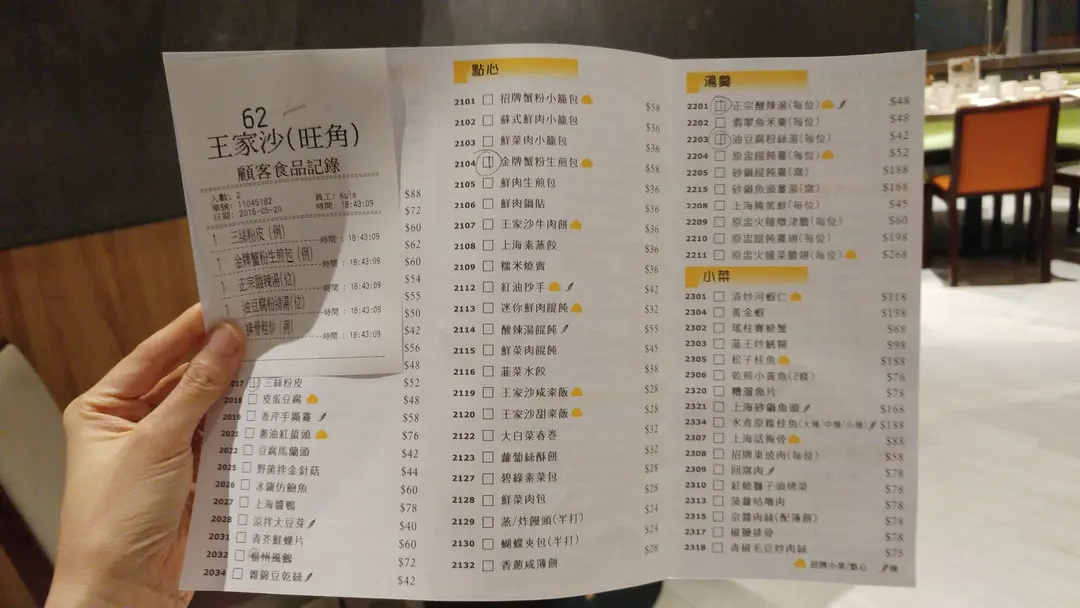 62
王家沙(旺角)
顧客食品記錄
人數: 2
員工: Kula
單號: 11045182
時間: 18:43:09
日期: 2016-05-20
1 三絲粉皮 (例)
時間 : 18:43:09
1 金牌蟹粉生煎包 (例)
時間 : 18:43:09
1 正宗酸辣湯(位)
時間 : 18:43:09
1 油豆腐粉絲湯(位)
時間 : 18:43:09
(例)
時間 : 18:43:09
$88
$72
$60
$62
$60
$54
$55
$50
$42
$56
$48
2017 三絲粉皮 $52
2018 皮蛋豆腐 $48
2019 香芹手撕雞 $58
蔥油紅蜇頭 $76
2022 豆腐馬蘭頭 $42
2025 野菌拌金針菇 $44
2026 冰鎮仿鮑魚 $60
2027 上海醬鴨 $78
2028 涼拌大豆芽 $40
2031 青芥鮮螺片 $60
2032 楊州風鵝 $72
2034 雜錦豆乾絲 $42
點心
2101 招牌蟹粉小籠包 $58
2102 蘇式鮮肉小籠包 $36
2103 鮮菜肉小籠包 $36
2104 金牌蟹粉生煎包 $58
2105 鮮肉生煎包 $36
2106 鮮肉鍋貼 $36
2107 王家沙牛肉餅 $36
2108 上海素蒸餃 $36
2109 糯米燒賣 $36
2112 紅油抄手 $42
2113 迷你鮮肉餛飩 $32
2114 酸辣湯餛飩 $55
2115 鮮菜肉餛飩 $45
2116 韮菜水餃 $38
2119 王家沙咸粢飯 $28
2120 王家沙甜粢飯 $28
2122 大白菜春卷 $32
2123 蘿蔔絲酥餅 $32
2127 碧綠素菜包 $28
2128 鮮菜肉包 $28
2129 蒸/炸饅頭(半打) $24
2130 蝴蝶夾包(半打) $24
2132 香蔥咸薄餅 $28
湯羹
2201 正宗酸辣湯(每位) $48
2202 翡翠魚米羹(每位) $48
2203 油豆腐粉絲湯(每位) $42
2204 原盅餛飩雞(每位) $52
2205 砂鍋餛飩雞(窩) $188
2215 砂鍋魚頭薑湯(窩) $168
2208 上海醃篤鮮(每位) $45
2209 原盅火朣燉津膽(每位) $60
2210 原盅餛飩雞翅(每位) $198
2211 原盅火朣菜膽翅(每位) $268
小菜
2301 清炒河蝦仁 $118
2304 黃金蝦 $198
2302 瑤柱賽螃蟹 $68
2303 韮王炒鱔糊 $98
2305 松子桂魚 $188
2306 乾煎小黃魚(2條) $76
2320 糟溜魚片 $78
2321 上海砂鍋魚頭 $168
2334 水煮原條桂魚(大辣/中辣/小辣) $188
2307 上海話梅骨 $88
2308 招牌東坡肉(每位) $58
2309 回窩肉 $78
2310 紅燒獅子頭烤菜 $78
2313 菠蘿咕嚕肉 $78
2315 京醬肉絲(配薄餅) $78
2317 椒鹽排骨 $78
2318 青椒毛豆炒肉絲 $75
招牌小菜/點心 辣